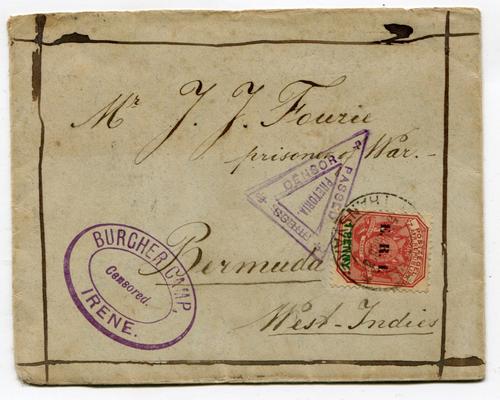 Mr J. J. Fourie
prisoner of War.
PASSED
PRESS
CENSOR
PRETORIA.
Bermuda
West-Indies
BURGHER CAMP,
Censored.
IRENE.
TRANS
E.R.I.
1 PENNY